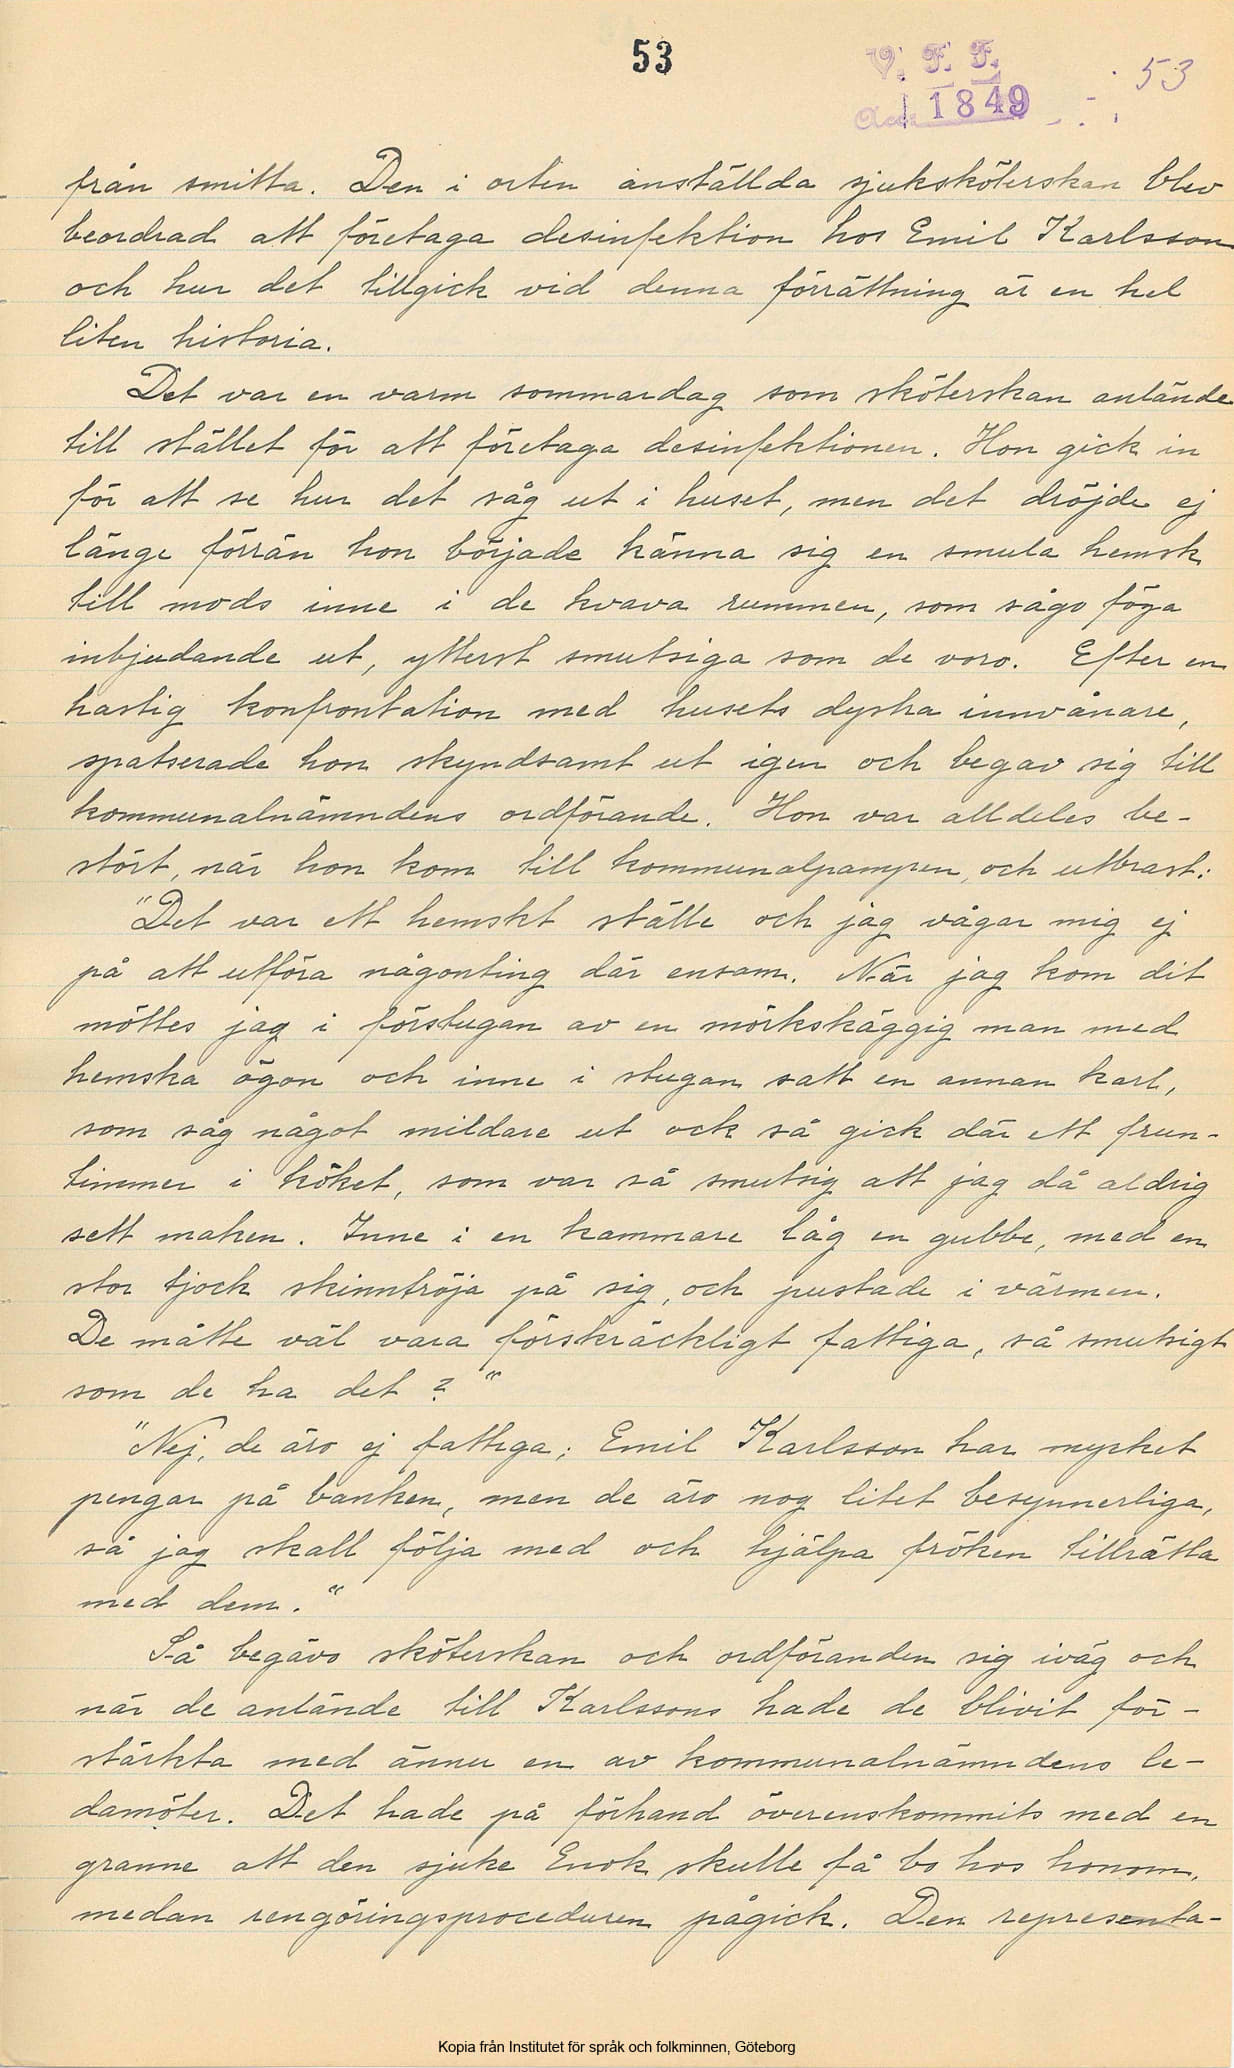 53
V. F. F.
53
Acc: 1849
från smitta. Den i orten anställda sjuksköterskan blev
beordrad att företaga desinfektion hos Emil Karlsson
och hur det tillgick vid denna förrättning är en hel
liten historia.
Det var en varm sommardag som sköterskan anlände
till stället för att företaga desinfektionen. Hon gick in
för att se hur det såg ut i huset, men det dröjde ej
länge förrän hon började känna sig en smula hemsk
till mods inne i de kvava rummen, som sågo föga
inbjudande ut, ytterst smutsiga som de voro. Efter en
hastig konfrontation med husets dystra innvånare,
spatserade hon skyndsamt ut igen och begav sig till
kommunalnämndens ordförande. Hon var alldeles be-
stört, när hon kom till kommunalpampen, och utbrast:
"Det var ett hemskt ställe och jag vågar mig ej
på att utföra någonting där ensam. När jag kom dit
möttes jag i förstugan av en mörkskäggig man med
hemska ögon och inne i stugan satt en annan karl,
som såg något mildare ut ock så gick där ett frun-
timmer i köket, som var så smutsig att jag då aldrig
sett maken. Inne i en kammare låg en gubbe, med en
stor tjock skinntröja på sig, och pustade i värmen.
De måtte väl vara förskräckligt fattiga, så smutsigt
som de ha det?"
"Nej, de äro ej fattiga; Emil Karlsson har mycket
pengar på banken, men de äro nog litet besynnerliga,
så jag skall följa med och hjälpa fröken tillrätta
med dem."
Så begåvo sköterskan och ordföranden sig iväg och
när de anlände till Karlssons hade de blivit för-
stärkta med ännu en av kommunalnämndens le-
damöter. Det hade på förhand överenskommits med en
granne att den sjuke Enok skulle få bo hos honom,
medan rengöringsproceduren pågick. Den representa-
Kopia från Institutet för språk och folkminnen, Göteborg